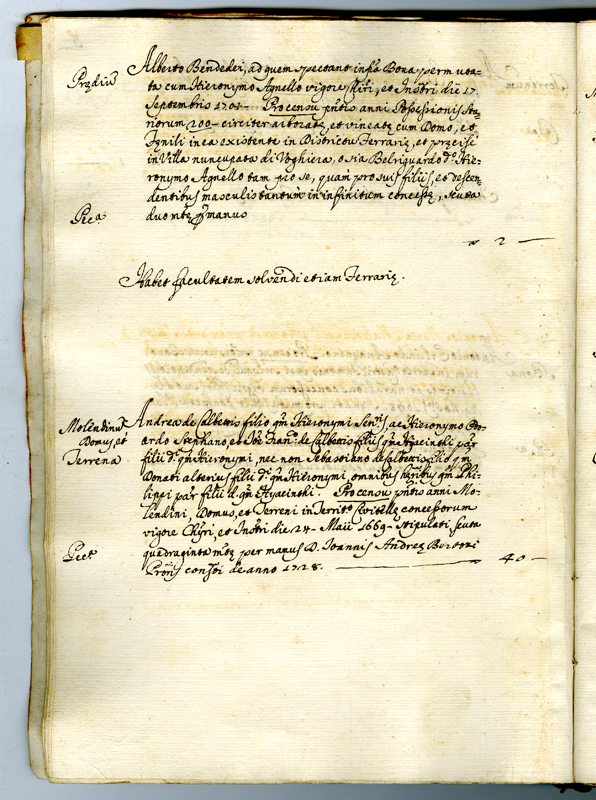 Prædiũ
Alberto Bendedei, ad quem spectant infã Bona permuta=
ta cum Hieronymo Agnello vigore Chiri, et Instri die 17.
Septembris 1701 - Pro censu pñtis anni Possessionis Sta=
riorum 200 - circiter arboratę, et vineatę cum Domo, et
Fęnili in ea existente in Districtu Ferrarię, et pręcise
in Villa nuncupata di Voghiera, o sia Belriguardo d.º Hie=
ronymo Agnello tam pro se, quam pro suis filiis, et descen=
dentibus masculis tantum in infinitum concessę, scuta
duo mtę p manus
Pica
2 —
Habet facultatem solvendi etiam Ferrarię.
Molendinũ
Domus, et
Terrena
Andrea de Salbettis filio qm̃ Hieronymi Senris, ac Hieronymo Do=
ardo Stephano, et Joẽ Franc.º de Salbettis filiis qm̃ Hyacinthi par
filii d. qm̃ Hieronymi, nec non Sebastiano de Salbettis filio qm̃
Donati alterius filii d. qm̃ Hieronymi, omnibus hęribus qm̃ Phi=
lippi par filii d. qm̃ Hyacinthi. Pro censu pñtis anni Mo=
lendini, Domus, et Terreni in Territo concessorum
vigore Chyri, et Instri die 24 - Maii 1669 - stipulati, scuta
quadraginta mtę per manus D. Ioannis Andreę
Proris consti de anno 1728.
40 —